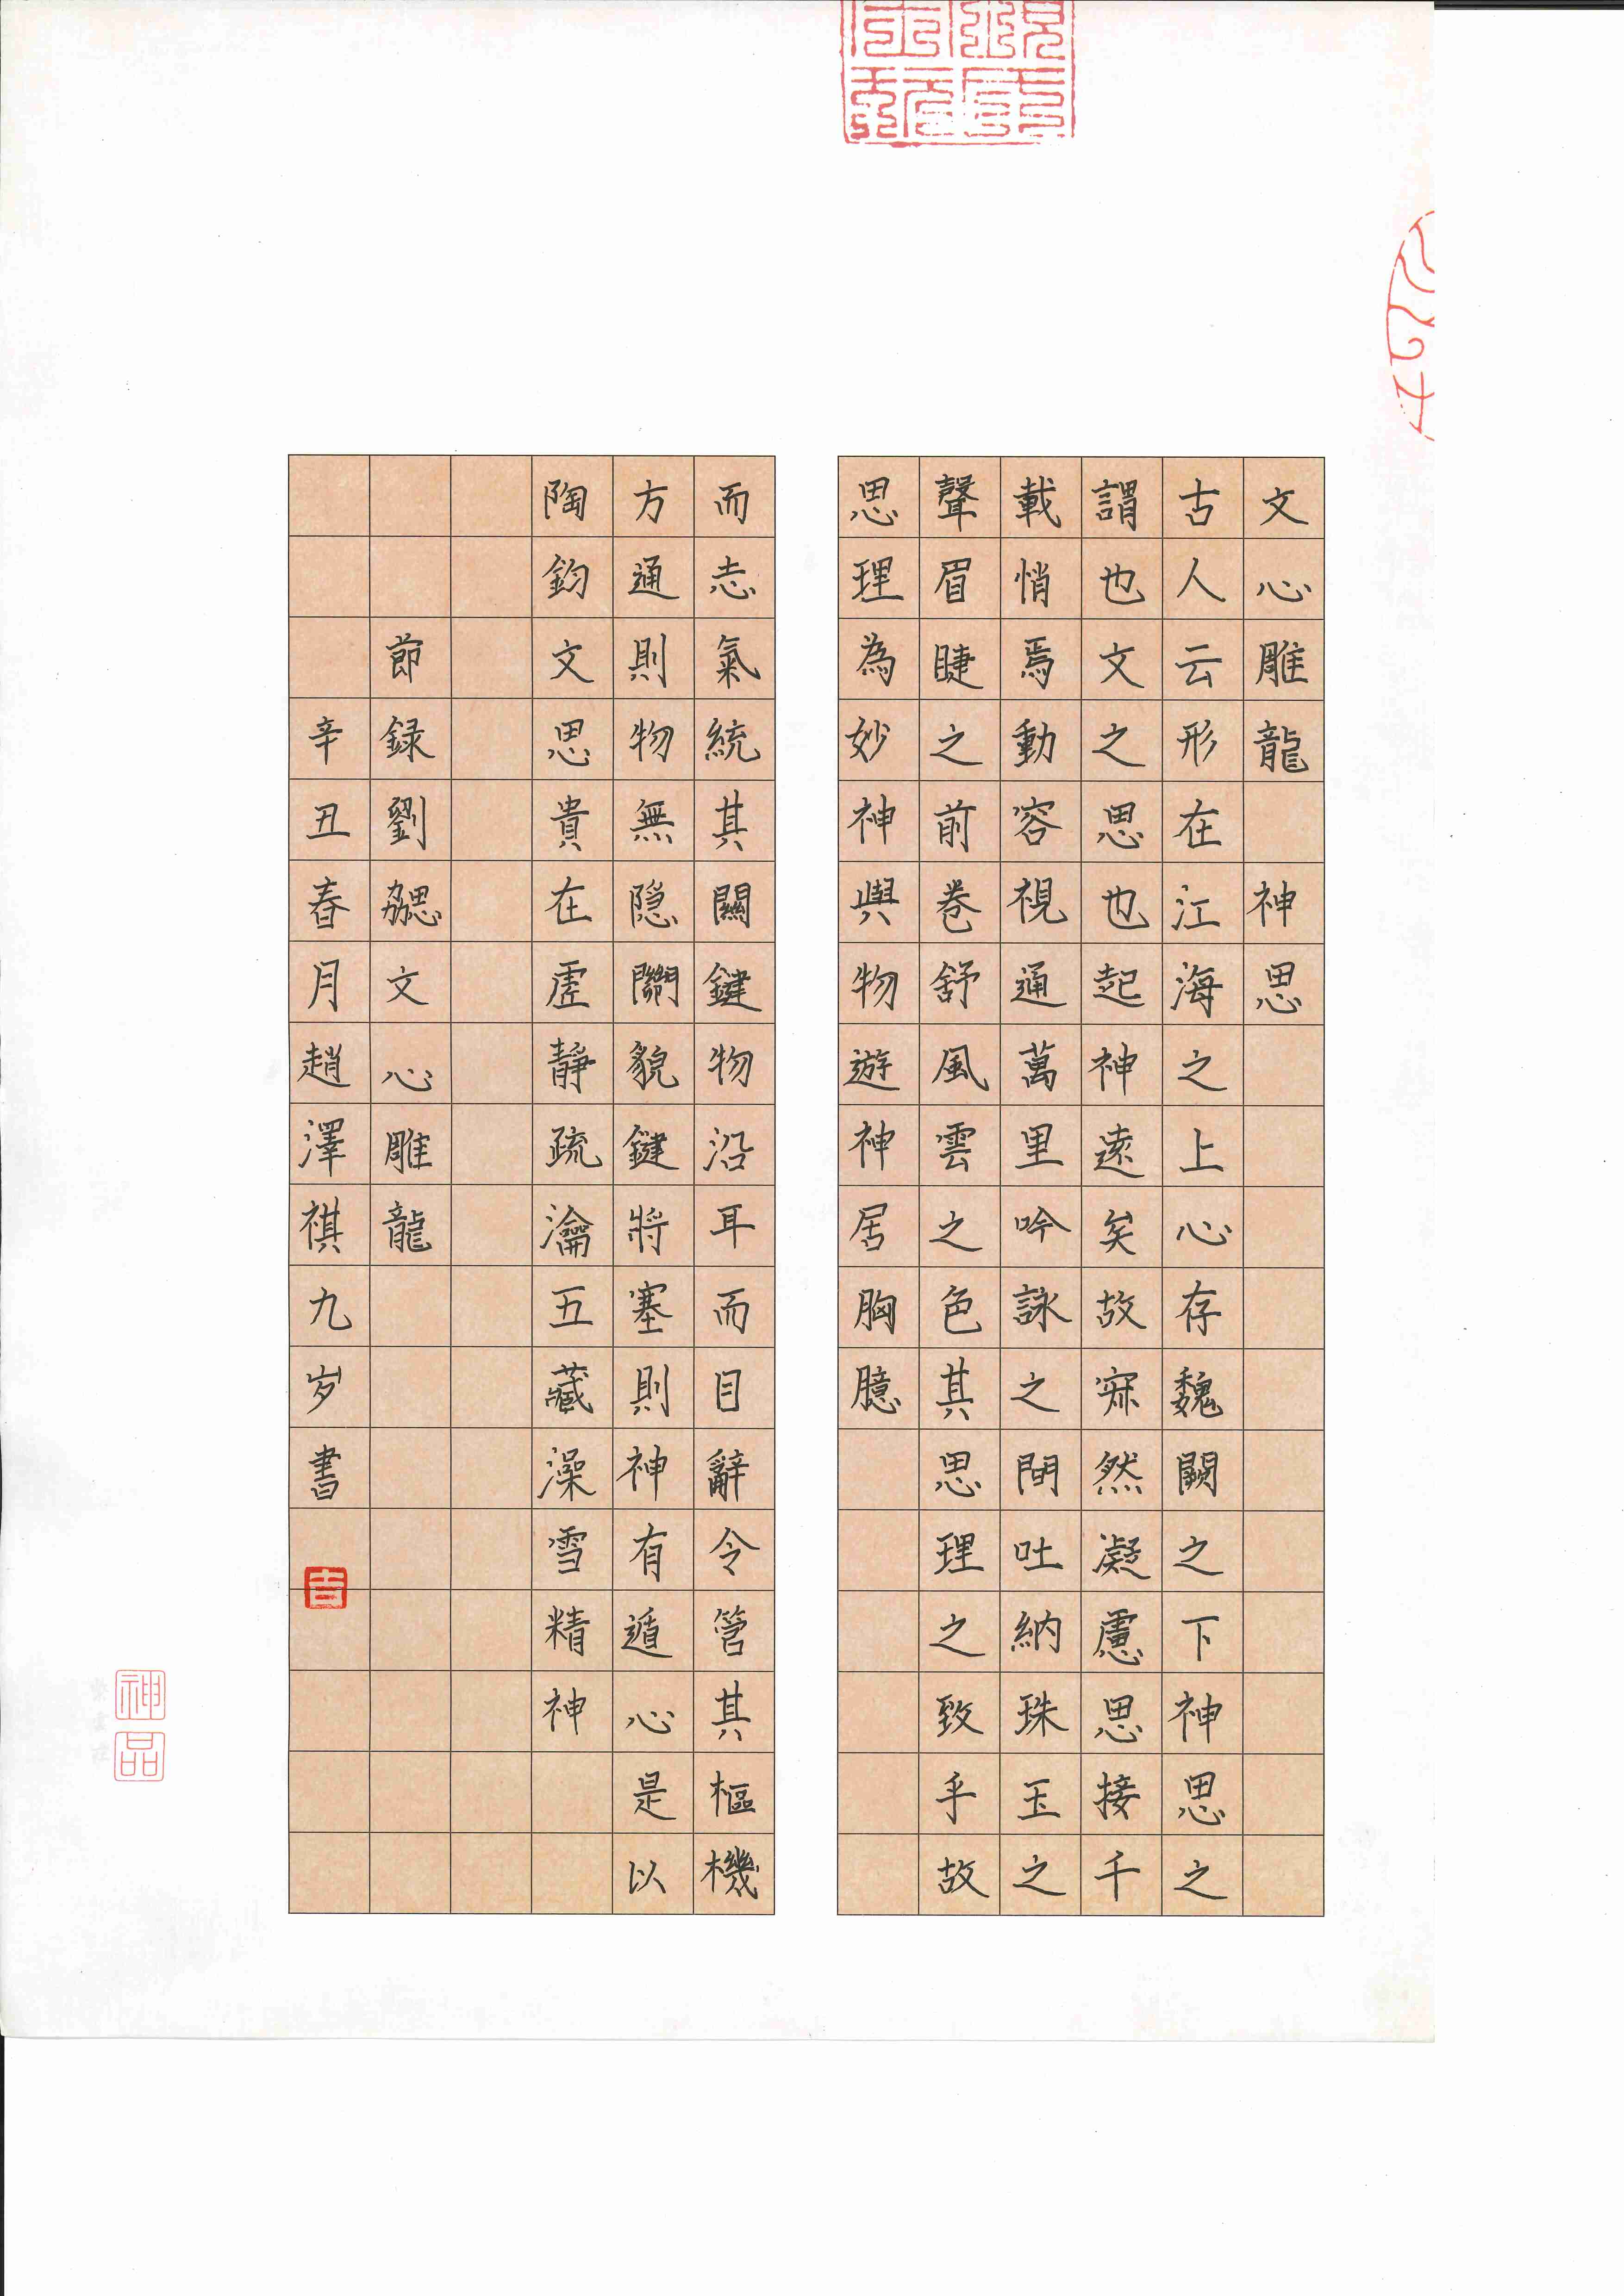 文心雕龍 神思
古人云形在江海之上心存魏闕之下神思之
謂也文之思也起神遠矣故寂然凝慮思接千
載悄焉動容視通萬里吟詠之間吐納珠玉之
聲眉睫之前卷舒風雲之色其思理之致乎故
思理為妙神與物遊神居胸臆
而志氣統其關鍵物沿耳而目辭令管其樞機
方通則物無隐關貌鍵將塞則神有遁心是以
陶鈞文思貴在虛靜疏瀹五藏澡雪精神
節録劉勰文心雕龍
辛丑春月趙澤祺九岁書
吉
神品